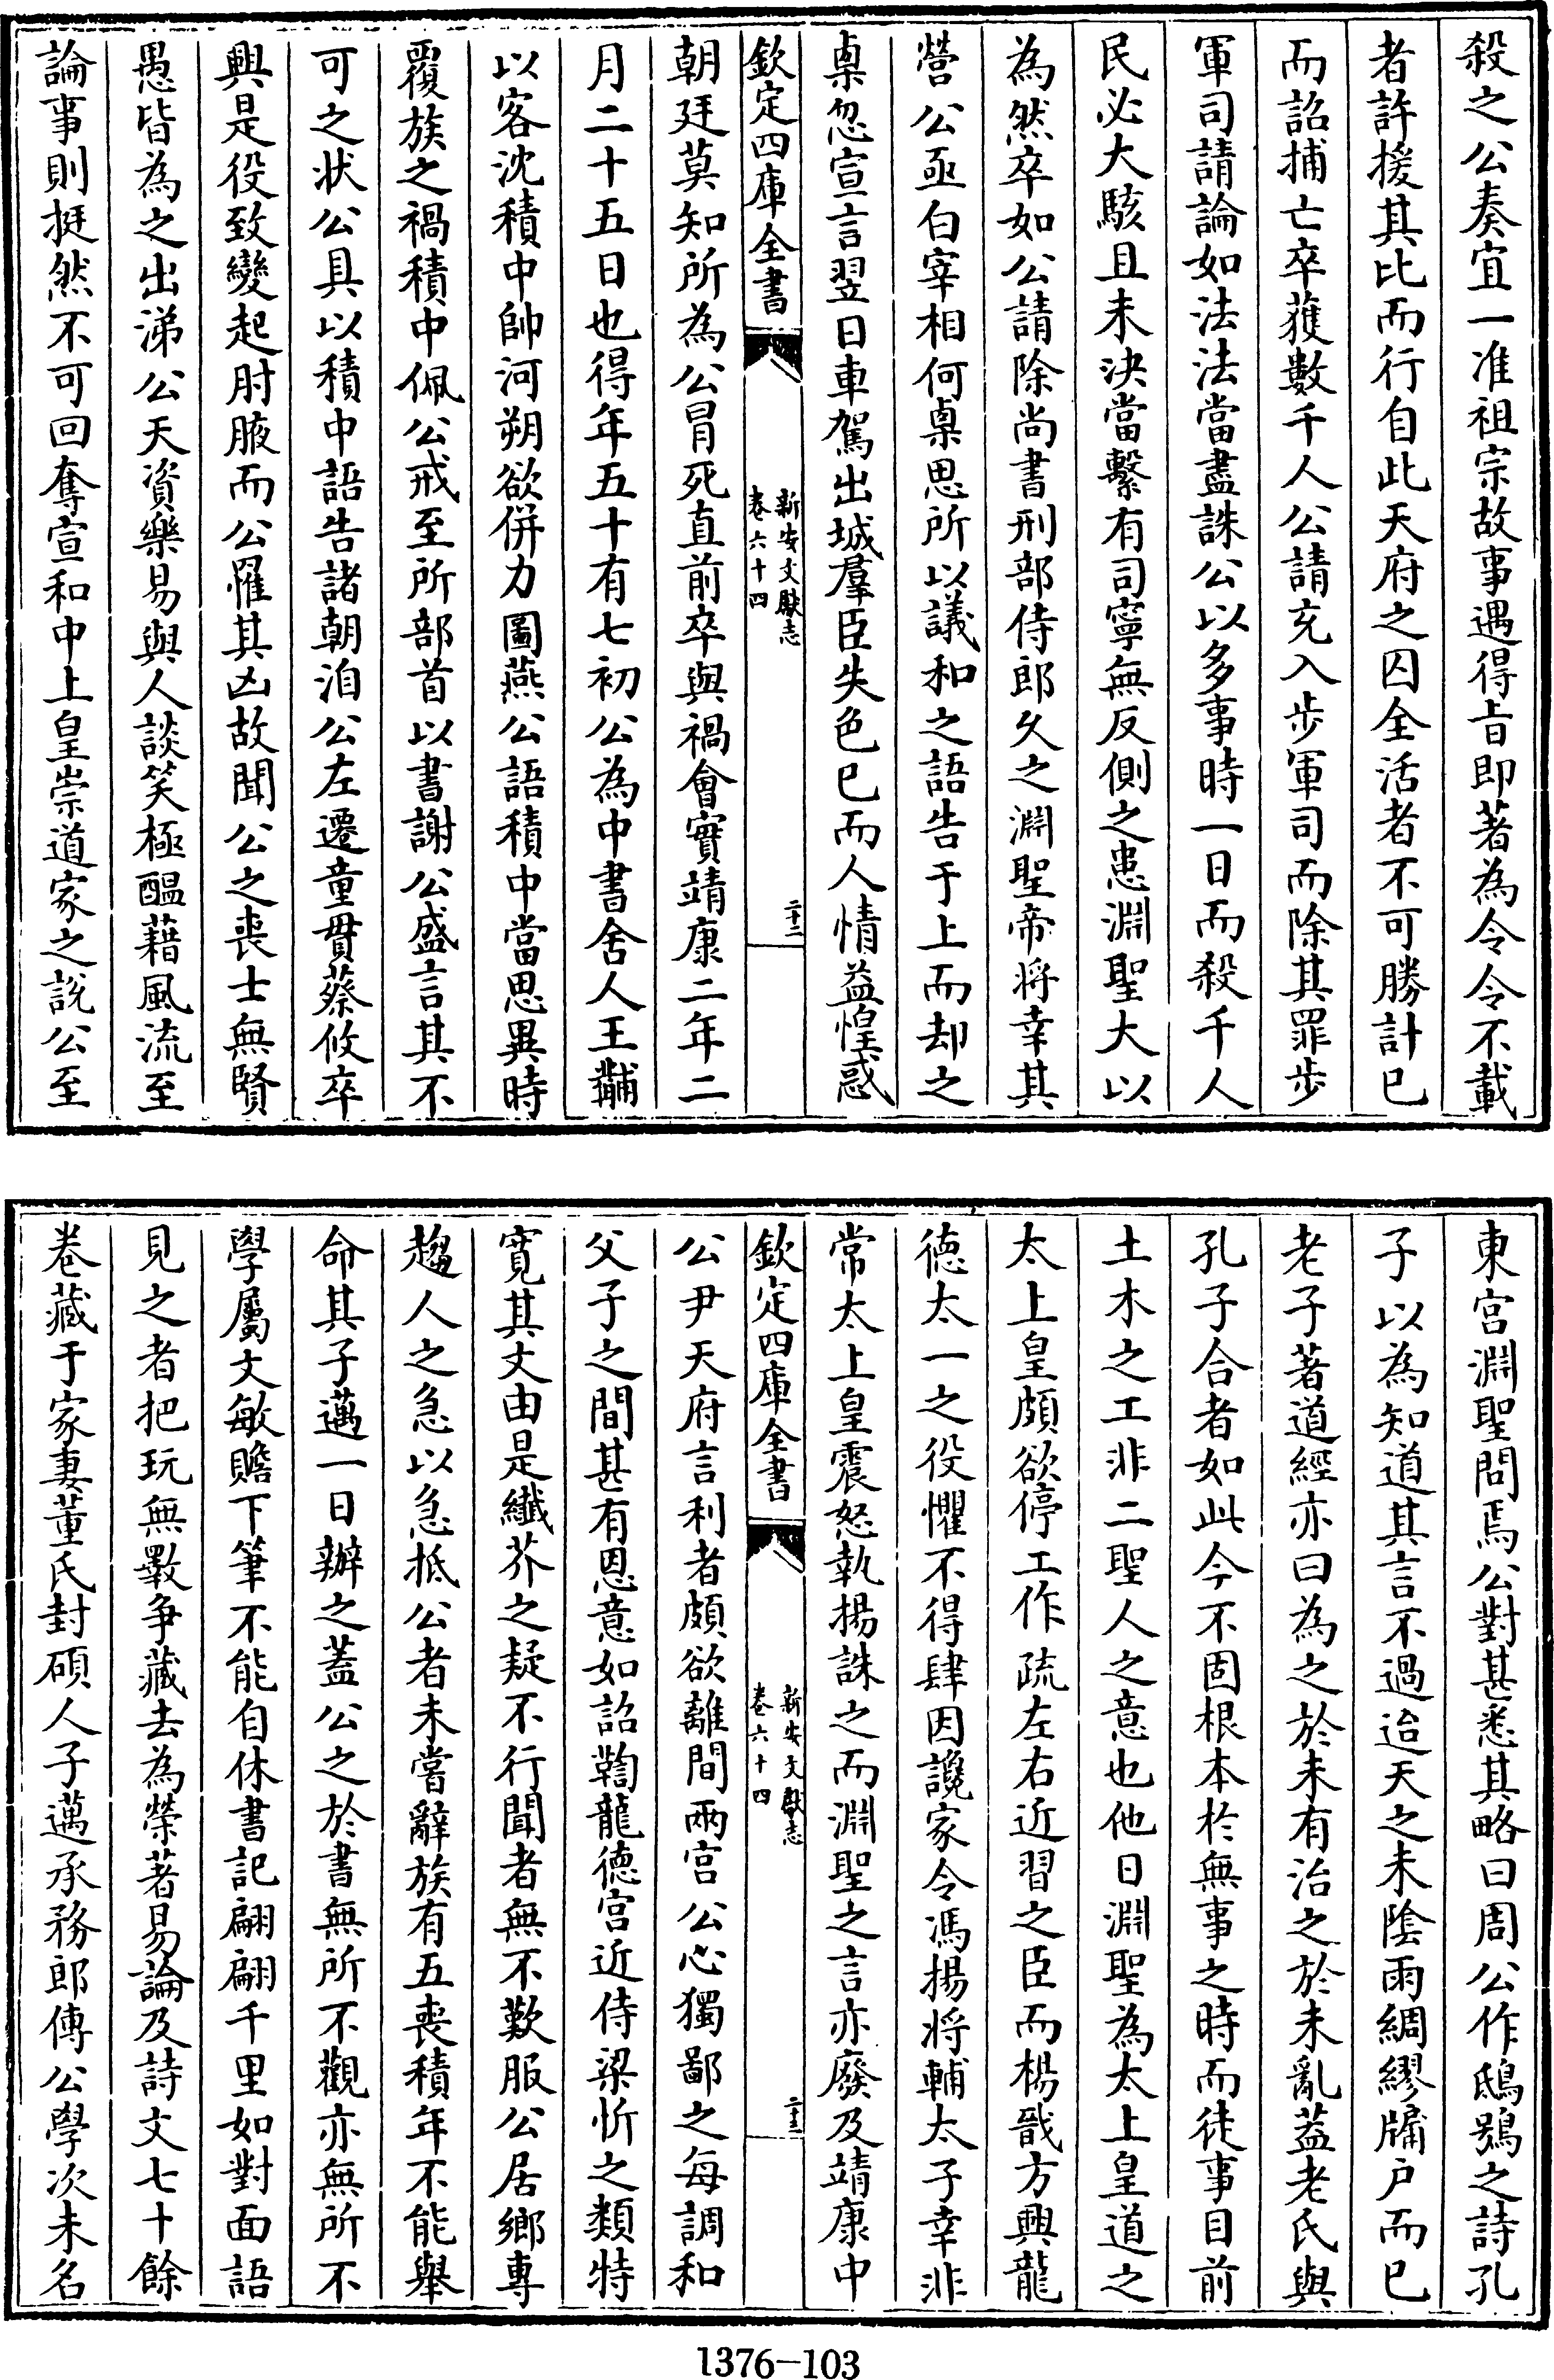 殺之公奏宜一准祖宗故事遇得㫖即著為令令不載
者許援其比而行自此天府之囚全活者不可勝計已
而詔捕亡卒獲數千人公請充入步軍司而除其罪步
軍司請論如法法當盡誅公以多事時一日而殺千人
民必大駭且未決當繫有司寧無反側之患淵聖大以
為然卒如公請除尚書刑部侍郎久之淵聖帝將幸其
營公亟白宰相何㮚思所以議和之語告于上而却之
㮚忽宣言翌日車駕出城羣臣失色已而人情益惶惑
欽定四庫全書
新安文獻志
卷六十四
二十二
朝廷莫知所為公冒死直前卒與禍會實靖康二年二
月二十五日也得年五十有七初公為中書舍人王黼
以客沈積中帥河朔欲併力圖燕公語積中當思異時
覆族之禍積中佩公戒至所部首以書謝公盛言其不
可之狀公具以積中語告諸朝洎公左遷童貫蔡攸卒
興是役致變起肘腋而公罹其凶故聞公之喪士無賢
愚皆為之出涕公天資樂易與人談笑極醖藉風流至
論事則挺然不可回奪宣和中上皇崇道家之說公至
東宫淵聖問焉公對甚悉其略曰周公作鴟鴞之詩孔
子以為知道其言不過迨天之未隂雨綢繆牖户而已
老子著道經亦曰為之於未有治之於未亂葢老氏與
孔子合者如此今不固根本於無事之時而徒事目前
土木之工非二聖人之意也他日淵聖為太上皇道之
太上皇頗欲停工作疏左右近習之臣而楊戩方興龍
徳太一之役懼不得肆因讒家令馮揚將輔太子幸非
常太上皇震怒執揚誅之而淵聖之言亦廢及靖康中
欽定四庫全書
新安文獻志
卷六十四
二十三
公尹天府言利者頗欲離間兩宫公心獨鄙之每調和
父子之間甚有恩意如詔鞫龍徳宫近侍梁忻之類特
寛其文由是纎芥之疑不行聞者無不歎服公居鄉專
趨人之急以急抵公者未嘗辭族有五喪積年不能舉
命其子邁一日辦之蓋公之於書無所不觀亦無所不
學屬文敏贍下筆不能自休書記翩翩千里如對面語
見之者把玩無斁爭藏去為榮著易論及詩文七十餘
卷藏于家妻董氏封碩人子邁承務郎傳公學次未名
1376-103